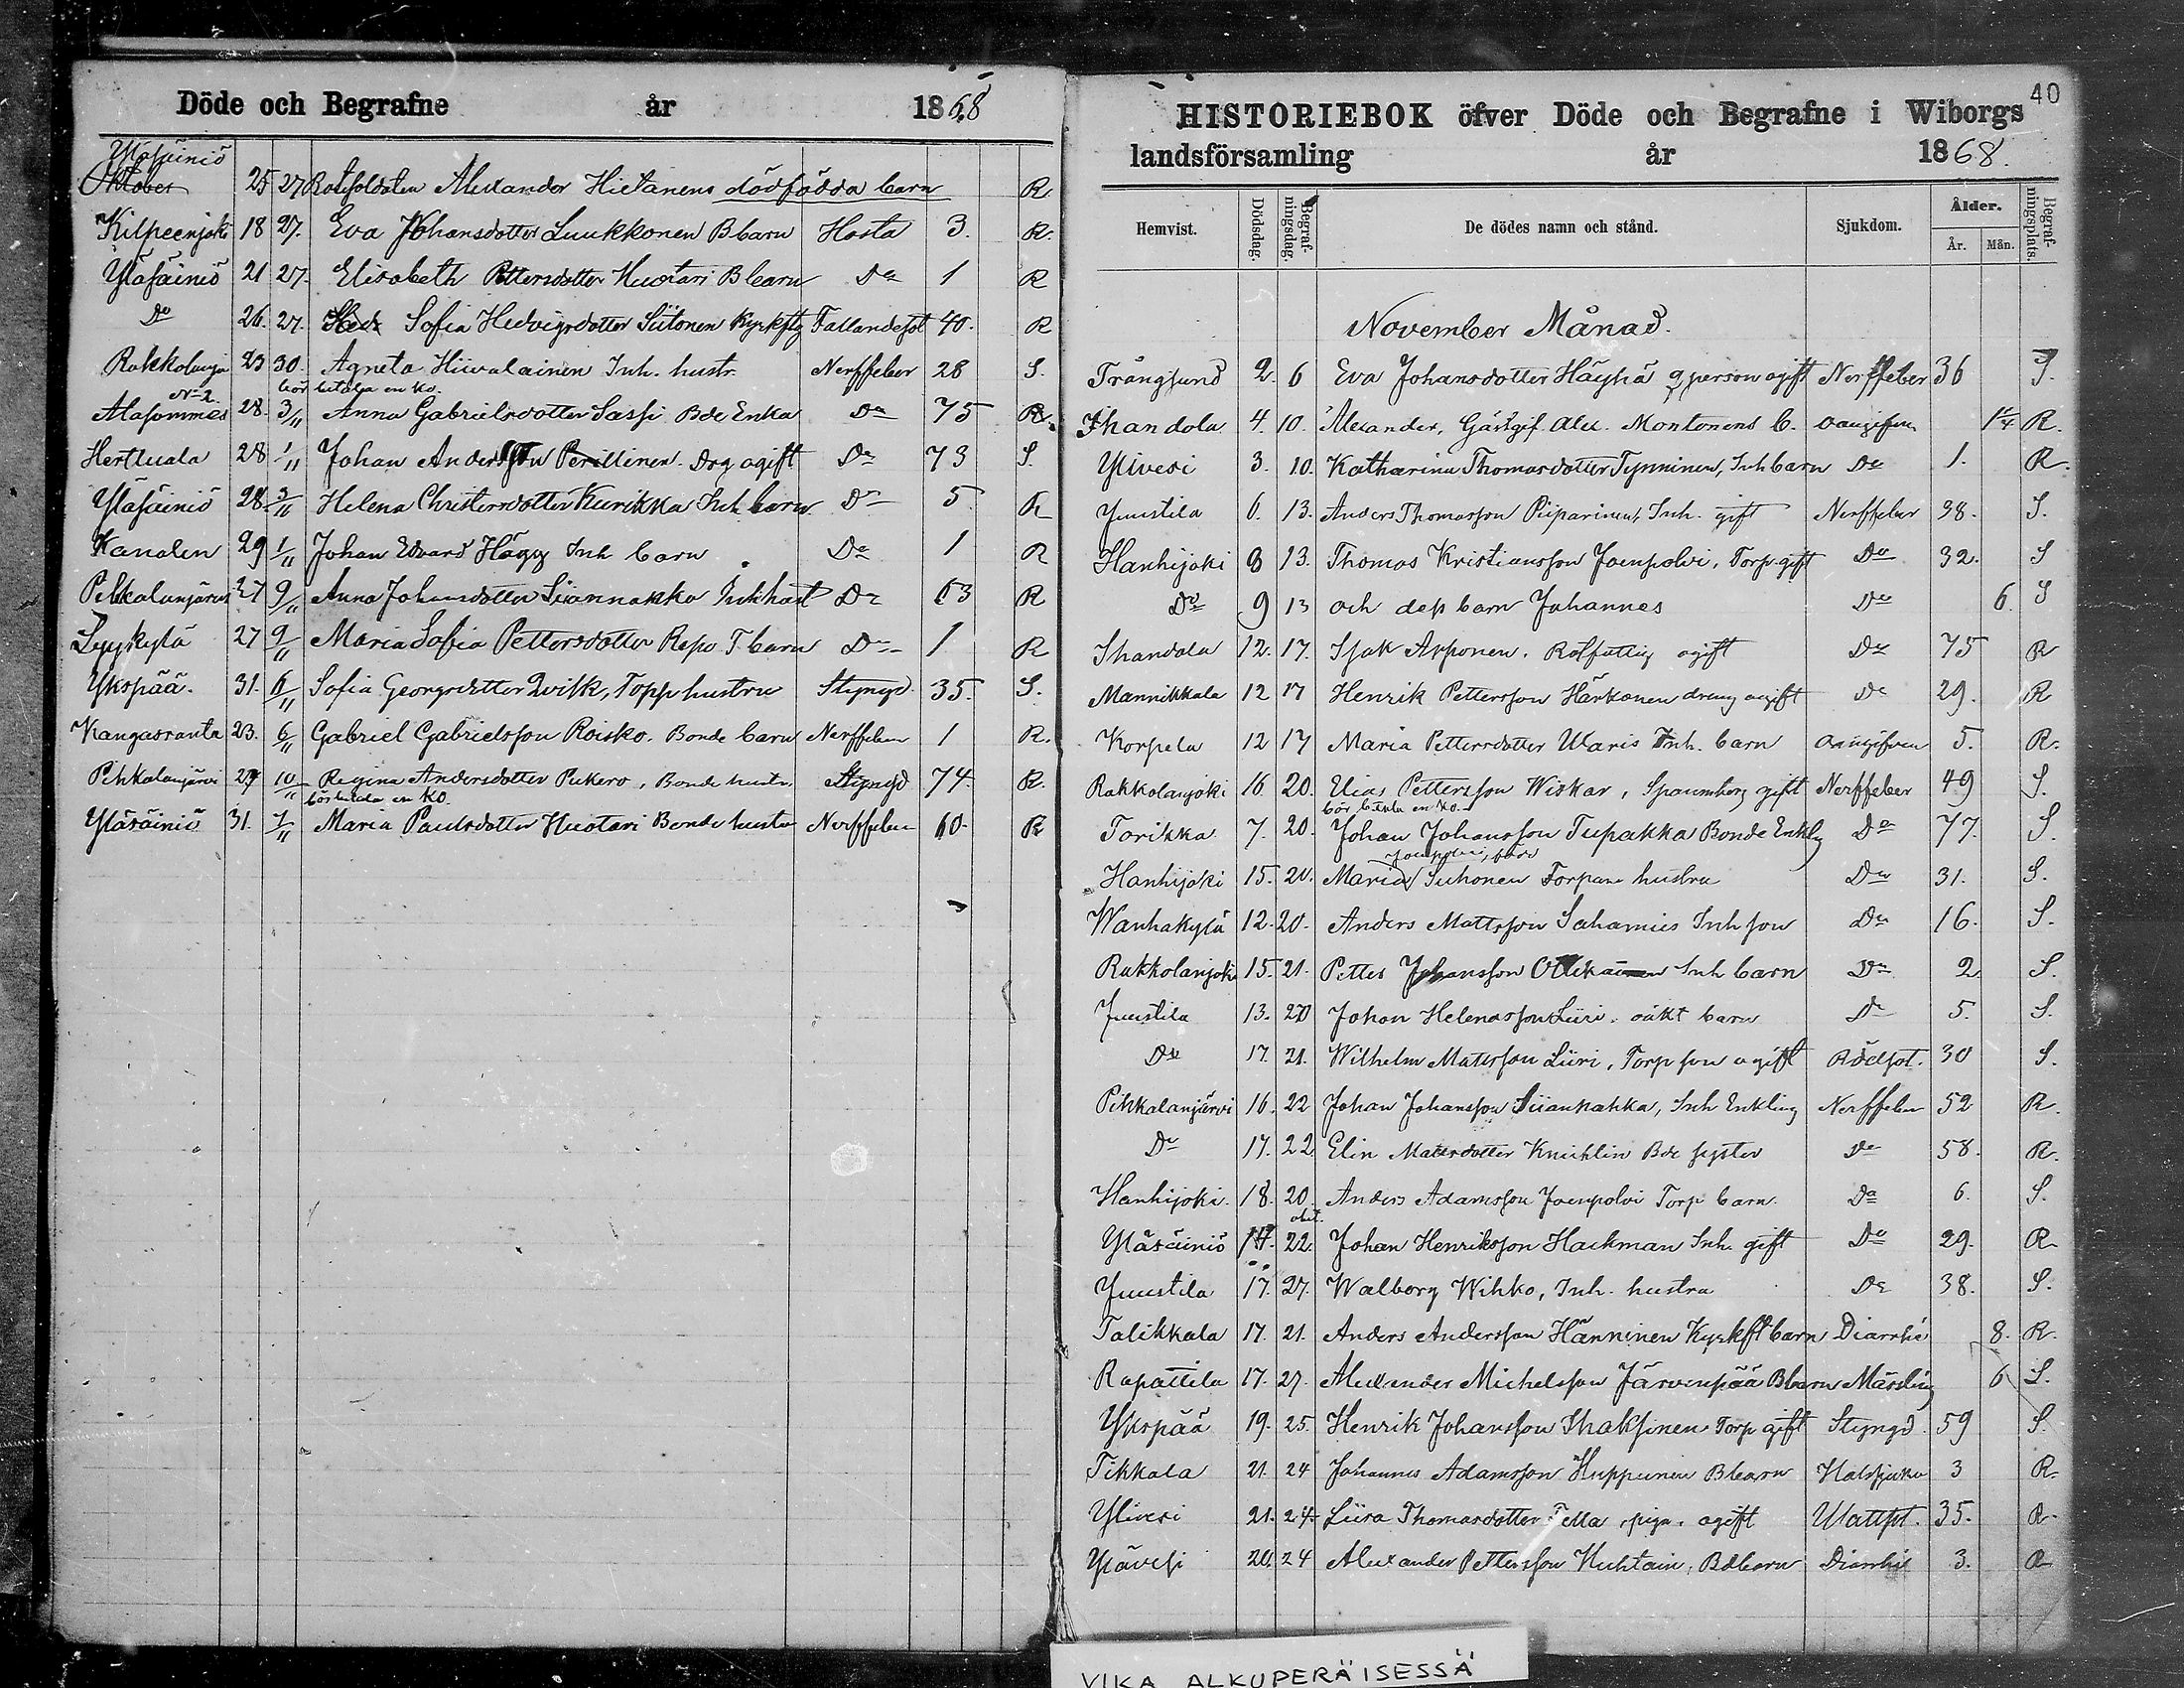 Döde och Begrafne år 1868
Yläsäiniö
Oktober 25 27 Rotesoldaten Alexander Hietanens dödfödda barn R
Kilpeenjoki 18 27. Eva Johansdotter Luukkonen B barn Hosta 3. R.
Yläsäiniö 21 27. Elisabeth Pettersdotter Huotari B barn Do 1 R
Do 26. 27. Sofia Hedvigsdotter Siitonen Kyrkftg Fallandesot 40. R
23 30. Agneta Hiivalainen Inh. hustr. Nerffeber 28 S.
No 2. bör betala en ko.
Alasommee 28. 3/11 Anna Gabrielsdotter Sassi Bde Enka Do 75 R.
Herttuala 28 1/11 Johan Andersson Perillinen Drg ogift Do 73 S.
Yläsäiniö 28. 3/11 Helena Christersdotter Kurikka Inh. barn Do 5 R
Kanalen 29 1/11 Johan Edvard Hägg Inh barn Do 1 R
27 9/11 Anna Johansdotter Do 63 R
27 9/11 Maria Sofia Pettersdotter Repo T. barn Do 1 R
Ykspää. 31. 6/11 Sofia Georgsdotter Qvisk, Torp hustru Styngd. 35. S.
Kangasranta 23. 6/11 Gabriel Gabrielsson Roisko. Bonde barn Nerffeber 1 R.
Pihkalanjärvi 29 10/11 Regina Andersdotter Pukero, Bonde hustr. Styngd 74. R.
bör betala en ko.
Yläsäiniö 31. 7/11 Maria Paulsdotter Huotari Bonde hustru Nerffeber 60. R
40
HISTORIEBOK öfver Döde och Begrafne i Wiborgs
landsförsamling år 1868.
Hemvist. Dödsdag. Begrafningsdag. De dödes namn och stånd. Sjukdom. Ålder. År. Mån. Begrafningsplats.
November Månad.
Trångsund 2. 6 Eva Johansdotter Häyhä q person ogift Nerffeber 36 S.
Ihandola 4. 10. Alexander, Gästgif. Alex. Montonens b. oangifven R.
Ylivesi 3. 10. Katharina Thomasdotter Tynninen, Inh barn Do 1. R.
Juustila 6. 13. Anders Thomasson Piiparinen, Inh. gift Nerffeber 38. S.
Hanhijoki 8 13. Thomas Kristiansson Joenpolvi, Torp. gift Do 32. S
Do 9 13 och dess barn Johannes Do 6. S
Ihandola 12. 17. Isak Apponen. Rotfattig ogift Do 75 R
Mannikkala 12 17 Henrik Pettersson Härkönen dreng ogift Do 29. R
Korpela 12 17 Maria Pettersdotter Ukaris Inh. barn oangifven 5. R.
Rakkolanjoki 16 20. Elias Pettersson Wiskar, gift Nerffeber 49 S.
bör betala en ko.
Torikka 7. 20. Johan Johansson Tupakka Bonde Enklg Do 77. S.
Joenpolvi, född
Hanhijoki 15. 20. Maria Suhonen Torpare hustru Do 31. S.
Wanhakylä 12. 20. Anders Mattsson Sahamies Inh son Do 16. S.
Rakkolanjoki 15. 21. Petter Johansson Inh barn Do 2 S.
Juustila 13. 20 Johan Helenasson Liiri. oäkt barn Do 5. S.
Do 17. 21. Wilhelm Matsson Liiri, Torp son ogift Rödsot. 30 S.
Pihkalanjärvi 16. 22 Johan Johansson Siiankahka, Inh Enkling Nerffeber 52 R.
Do 17. 22. Elin Matsdotter Knichlin Bde syster Do 58. R.
Hanhijoki. 18. 20 Anders Adamsson Joenpolvi Torp barn. Do 6. S.
Yläsäiniö 22. Johan Henriksson Hackman Inh. gift Do 29. R
Juustila 17. 27. Walborg Wihko, Inh. hustru Do 38. S.
Talikkala 17. 21. Anders Andersson Hänninen Kyrkft barn Diarrhé 8. R.
Rapattila 17. 27. Alexander Michelsson Järvenpää B barn Mässling 6 S.
Ykspää 19. 25. Henrik Johansson Ihaksinen Torp gift Styngd. 59 S.
Tikkala 21. 24 Johannes Adamsson Huppunen B barn Halssjuka 3 R.
Ylivesi 21. 24. Liisa Thomasdotter Tella, piga. ogift Wattsot. 35. R.
Ylävesi 20. 24 Alexander Pettersson Huhtain, Bdbarn Diarrhé 3. R
VIKA ALKUPERÄISESSÄ